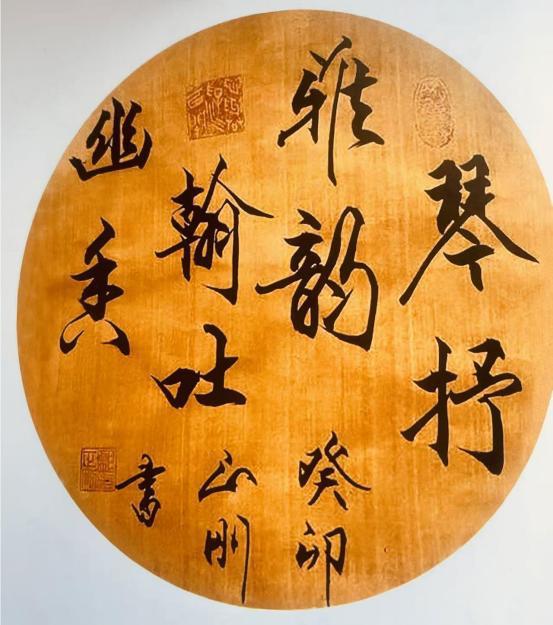 琴抒
雅韵
翰吐
幽香
癸卯
山刚
书